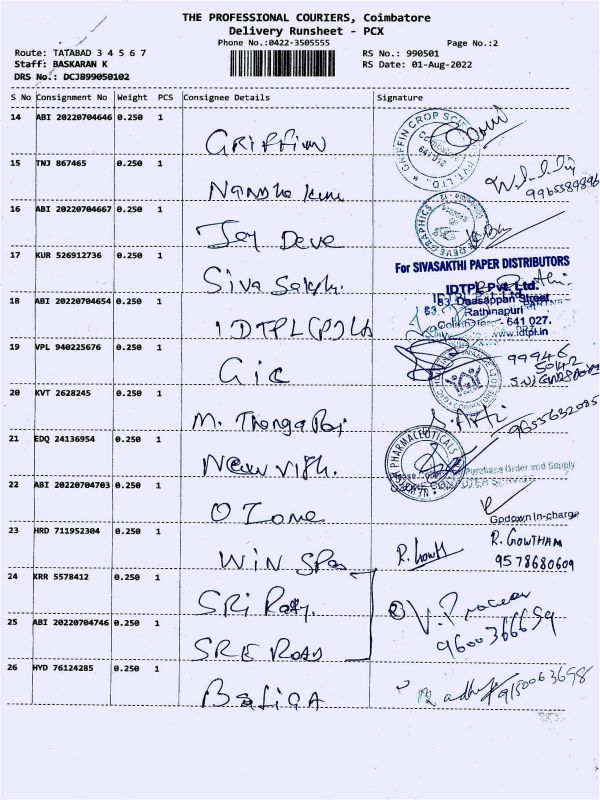 THE PROFESSIONAL COURIERS, Coimbatore
Delivery Runsheet - PCX
Phone No.:0422-3505555
Page No.:2
Route: TATABAD 3 4 5 6 7
RS No.: 990501
Staff: BASKARAN K
RS Date: 01-Aug-2022
DRS No.: DCJB99050102
S No Consignment No Weight PCS Consignee Details Signature
14 ABI 20220704646 0.250 1
Griffinn
15 TNJ 867465 0.250 1
9965589896
16 ABI 20220704667 0.250 1
Jey Deve
17 KUR 526912736 0.250 1
Siva Sakthi.
For SIVASAKTHI PAPER DISTRIBUTORS
18 ABI 20220704654 0.250 1
IDTPL (P) Ltd
IDTPL Pvt. Ltd.
63, Daasappan Street,
Rathinapuri
Coimbatore - 641 027.
www.idtpl.in
19 VPL 940225676 0.250 1
Gic
99946
20 KVT 2628245 0.250 1
M. Thanga Raj
S. Arthi
9655632085
21 EDQ 24136954 0.250 1
NEW PHARMACEUTICALS
Purchase Order and Supply
22 ABI 20220704703 0.250 1
OZone
Godown In-charge
23 HRD 711952304 0.250 1
Win Spa
R. Gowth
R. GOWTHAM
9578680609
24 KRR 5578412 0.250 1
SRi
25 ABI 20220704746 0.250 1
SRE ROAD
9600366659
26 HYD 76124285 0.250 1
9150063698